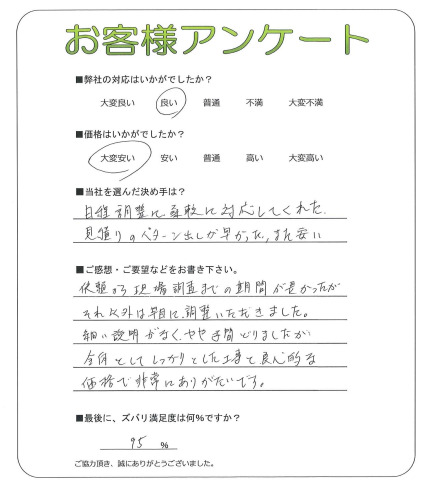 お客様アンケート
■弊社の対応はいかがでしたか？
大変良い 良い 普通 不満 大変不満
■価格はいかがでしたか？
大変安い 安い 普通 高い 大変高い
■当社を選んだ決め手は？
日程調整に柔軟に対応してくれた.
見積りのパターン出しが早かった,また安い
■ご感想・ご要望などをお書き下さい。
依頼から現場調査までの期間が長かったが
それ以外は早目に調整いただきました。
細い説明がなく、やや手間どりましたが
全体としてしっかりとした工事と良心的な
価格で非常にありがたいです。
■最後に、ズバリ満足度は何％ですか？
95 ％
ご協力頂き、誠にありがとうございました。